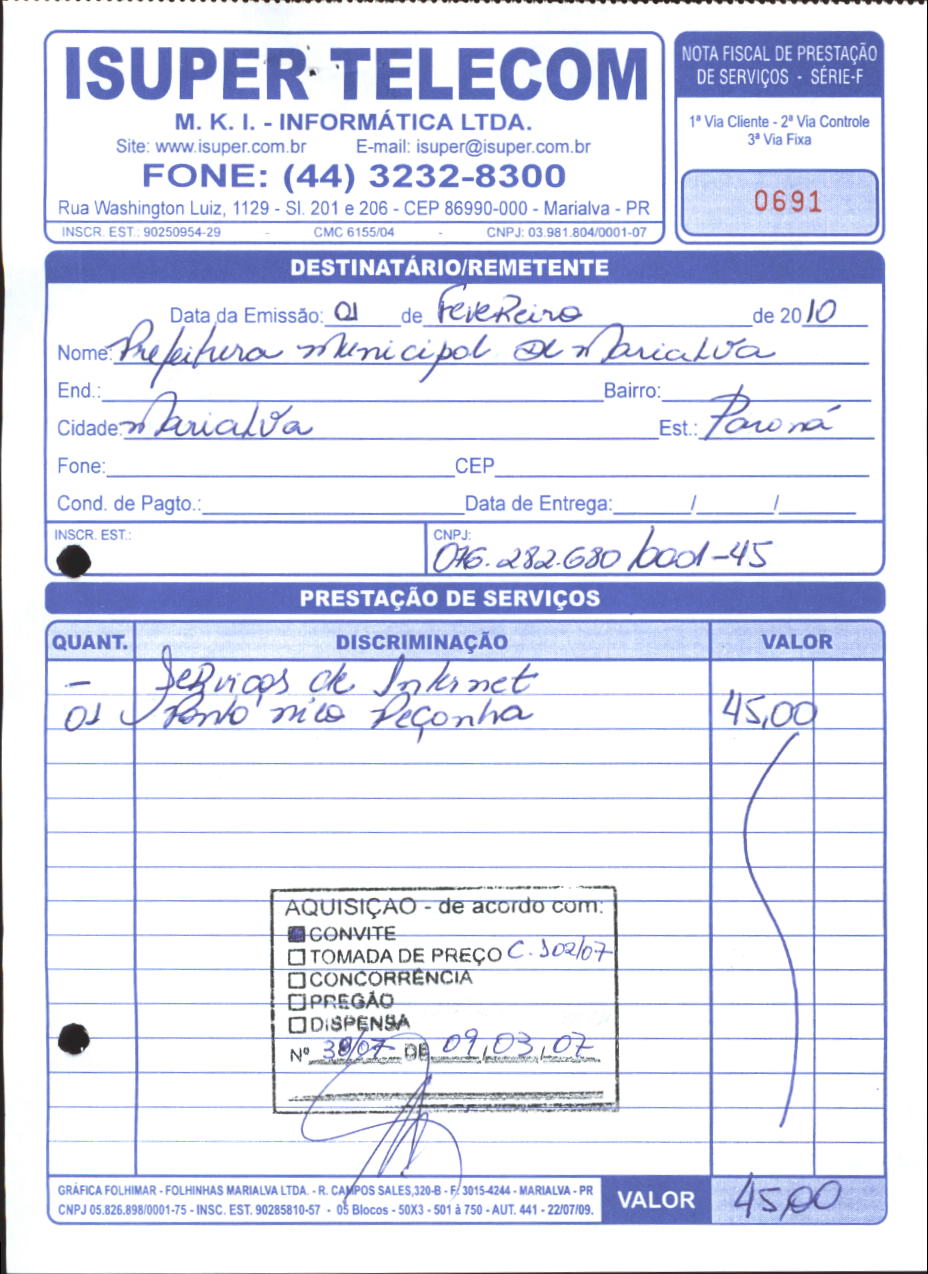 ISUPER TELECOM
M. K. I. - INFORMÁTICA LTDA.
Site: www.isuper.com.br E-mail: isuper@isuper.com.br
FONE: (44) 3232-8300
Rua Washington Luiz, 1129 - Sl. 201 e 206 - CEP 86990-000 - Marialva - PR
INSCR. EST.: 90250954-29 - CMC 6155/04 - CNPJ: 03.981.804/0001-07
NOTA FISCAL DE PRESTAÇÃO
DE SERVIÇOS - SÉRIE-F
1ª Via Cliente - 2ª Via Controle
3ª Via Fixa
0691
DESTINATÁRIO/REMETENTE
Data da Emissão: 01 de Fevereiro de 2010
Nome: Prefeitura Municipal de Marialva
End.: Bairro:
Cidade: Marialva Est.: Paraná
Fone: CEP
Cond. de Pagto.: Data de Entrega: / /
INSCR. EST.: CNPJ:
076.282.680/0001-45
PRESTAÇÃO DE SERVIÇOS
QUANT. DISCRIMINAÇÃO VALOR
- Serviços de Internet
01 Ponto Peçanha 45,00
AQUISIÇÃO - de acordo com:
CONVITE
TOMADA DE PREÇO C. 102/07
CONCORRÊNCIA
PREGÃO
DISPENSA
Nº 38/07 DE 09,03,07
GRÁFICA FOLHIMAR - FOLHINHAS MARIALVA LTDA. - R. CAMPOS SALES,320-B - F: 3015-4244 - MARIALVA - PR
CNPJ 05.826.898/0001-75 - INSC. EST. 90285810-57 - 05 Blocos - 50X3 - 501 à 750 - AUT. 441 - 22/07/09.
VALOR 45,00